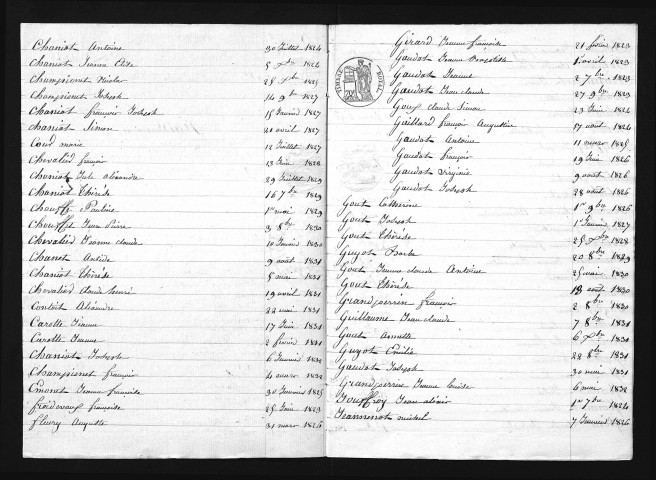 Chaniot Antoine 30 Juillet 1824
Chaniot Jeanne 5 1824
Championet Nicolas 25 1825
Championet Joseph 14 9bre 1827
Chaniot françois Joseph 15 Janvier 1827
Chaniot Simon 21 avril 1827
marie 12 Juillet 1827
Chevalier françois 13 Juin 1828
Chaniot Jule aléxandre 29 Juillet 1829
Chaniot Thérése 16 7bre 1829
Chouffe Pauline 1er mai 1829
Chouffet Jean Pierre 3 8bre 1830
Chevalier Jeanne claude 10 Janvier 1830
Chanet 9 août 1831
Chaniot Thérése 8 mai 1831
Chevalier Claude honoré 19 avril 1831
Contoit Aléxandre 22 mai 1831
Carotte Jeanne 17 Juin 1831
Carotte Jeanne 2 février 1831
Chaniot Joseph 6 Janvier 1832
Championet françois 4 mars 1832
Emonet Jeanne françoise 30 Janvier 1825
froidevaux françoise 25 Juin 1823
fleury Auguste 31 mars 1826
Girard Jeanne françoise 21 février 1823
Gaudot Jeanne 1 avril 1823
Gaudot Jeanne 2 7bre 1823
Gaudot Jean claude 27 9bre 1823
Goux claude Simon 23 Juin 1824
Gaillard françois Augustin 17 août 1824
Gaudot Antoine 11 mars 1825
Gaudot françois 19 Juin 1826
Gaudot Virginie 9 août 1826
Gaudot Joseph 28 août 1826
Gout Catherine 1er 9bre 1826
Gout Joseph 1er Janvier 1827
Gout Thérése 25 1828
Guyot 20 8bre 1829
Gout Jeanne claude Antoine 25 mai 1830
Gout Thérése 13 août 1830
Grandperrin françois 2 8bre 1830
Guillaume Jean claude 7 8bre 1831
Gout Annette 6 1831
Guyot Emilie 28 8bre 1831
Gaudot Joseph 30 mai 1831
Grandperrin Jeanne Louise 6 mai 1832
Jouffroy Jean 1er 7bre 1824
Jeanninot michel 7 Janvier 1826